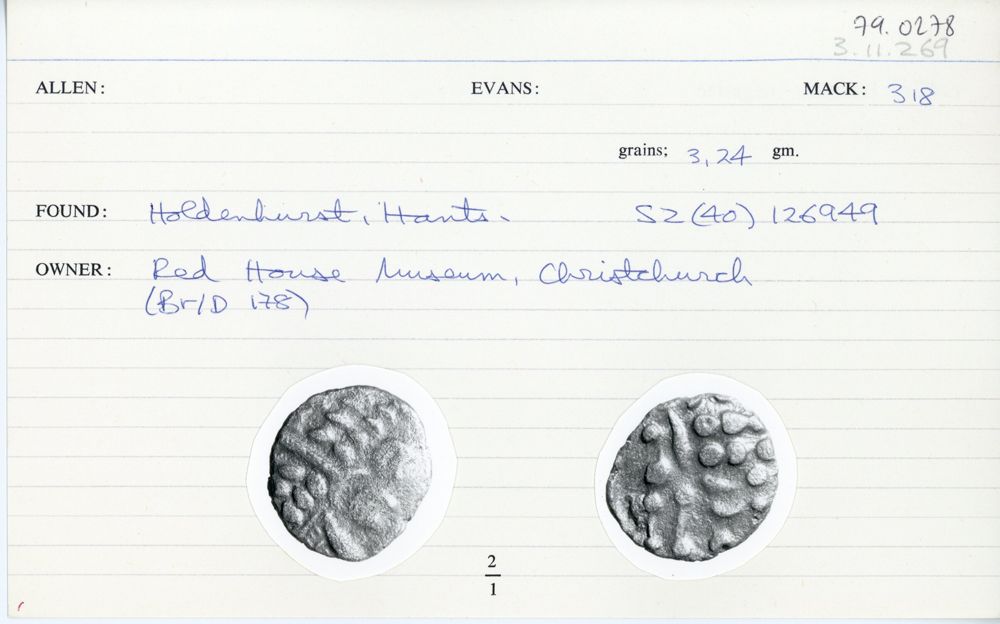 79.0278
3.11.269
ALLEN: EVANS: MACK: 318
grains; 3,24 gm.
FOUND: Holdenhurst, Hants. SZ(40) 126949
OWNER: Red House Museum, Christchurch
(Br/D 178)
2
1